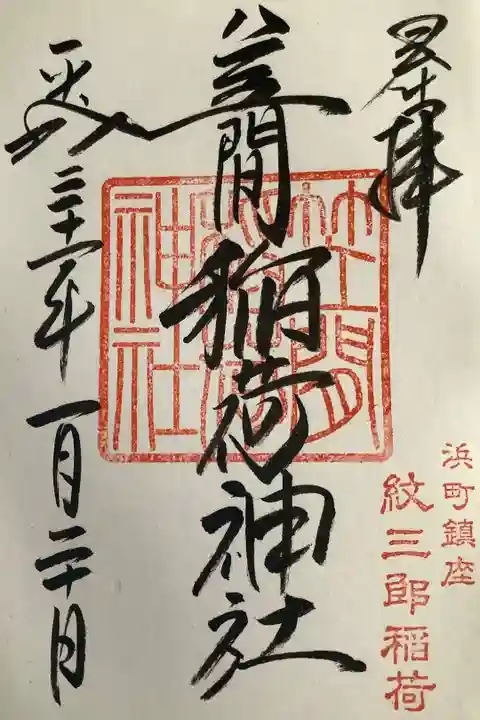 奉拝
浜町鎮座
紋三郎稲荷
笠間稲荷神社
笠間
稲荷
神社
平成三十一年一月二十日